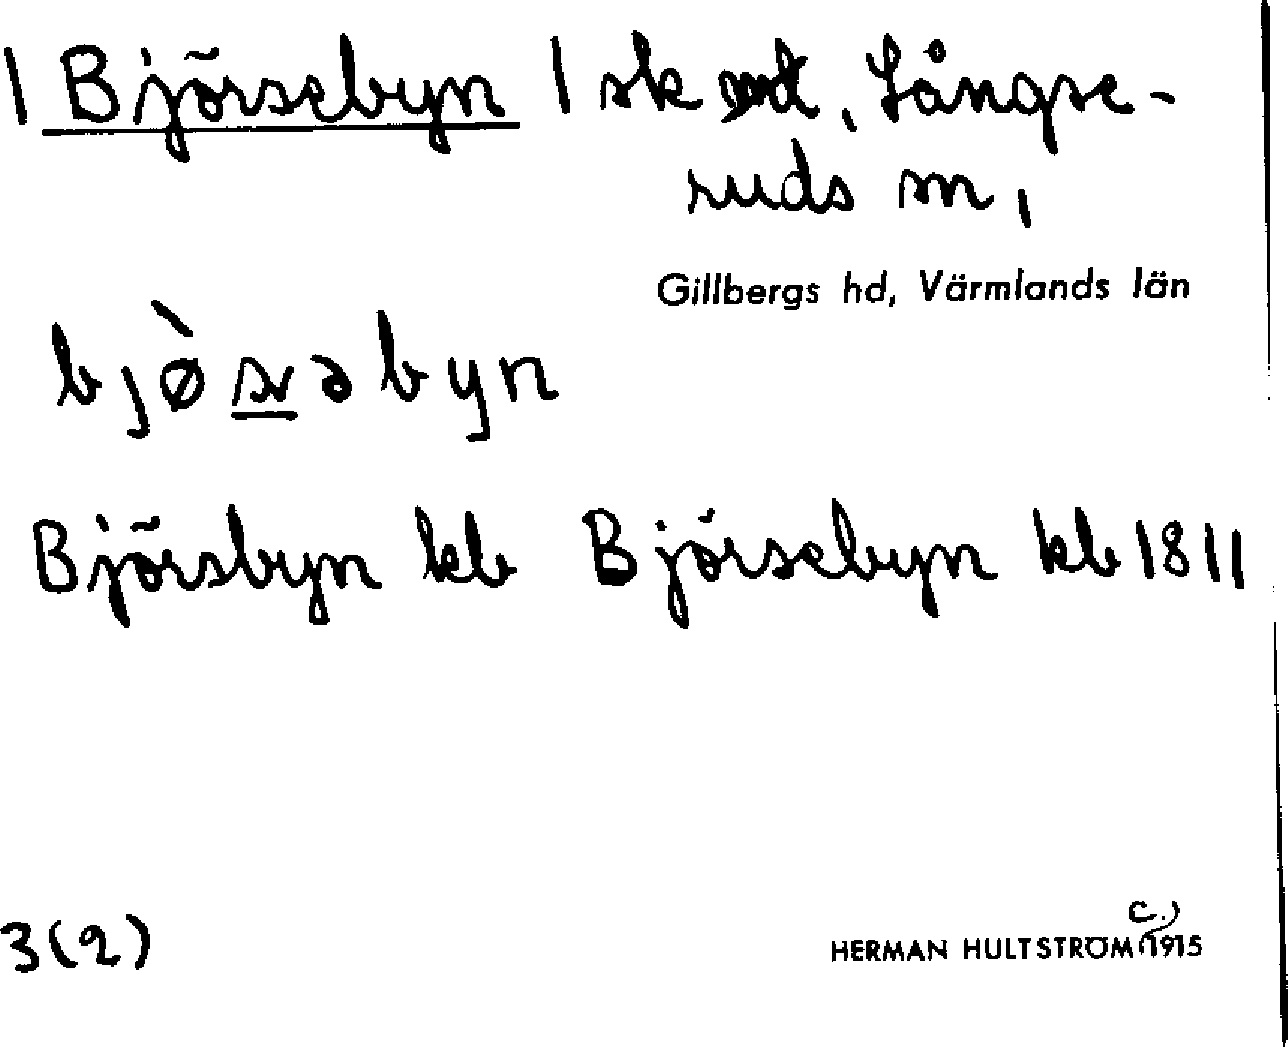 | Björsebyn | sk , Långse-
ruds sn,
Gillbergs hd, Värmlands län
bjø̀səbyn
Björsbyn kb Björsebyn kb 1811
3(2)
HERMAN HULTSTRÖM (c.) 1915